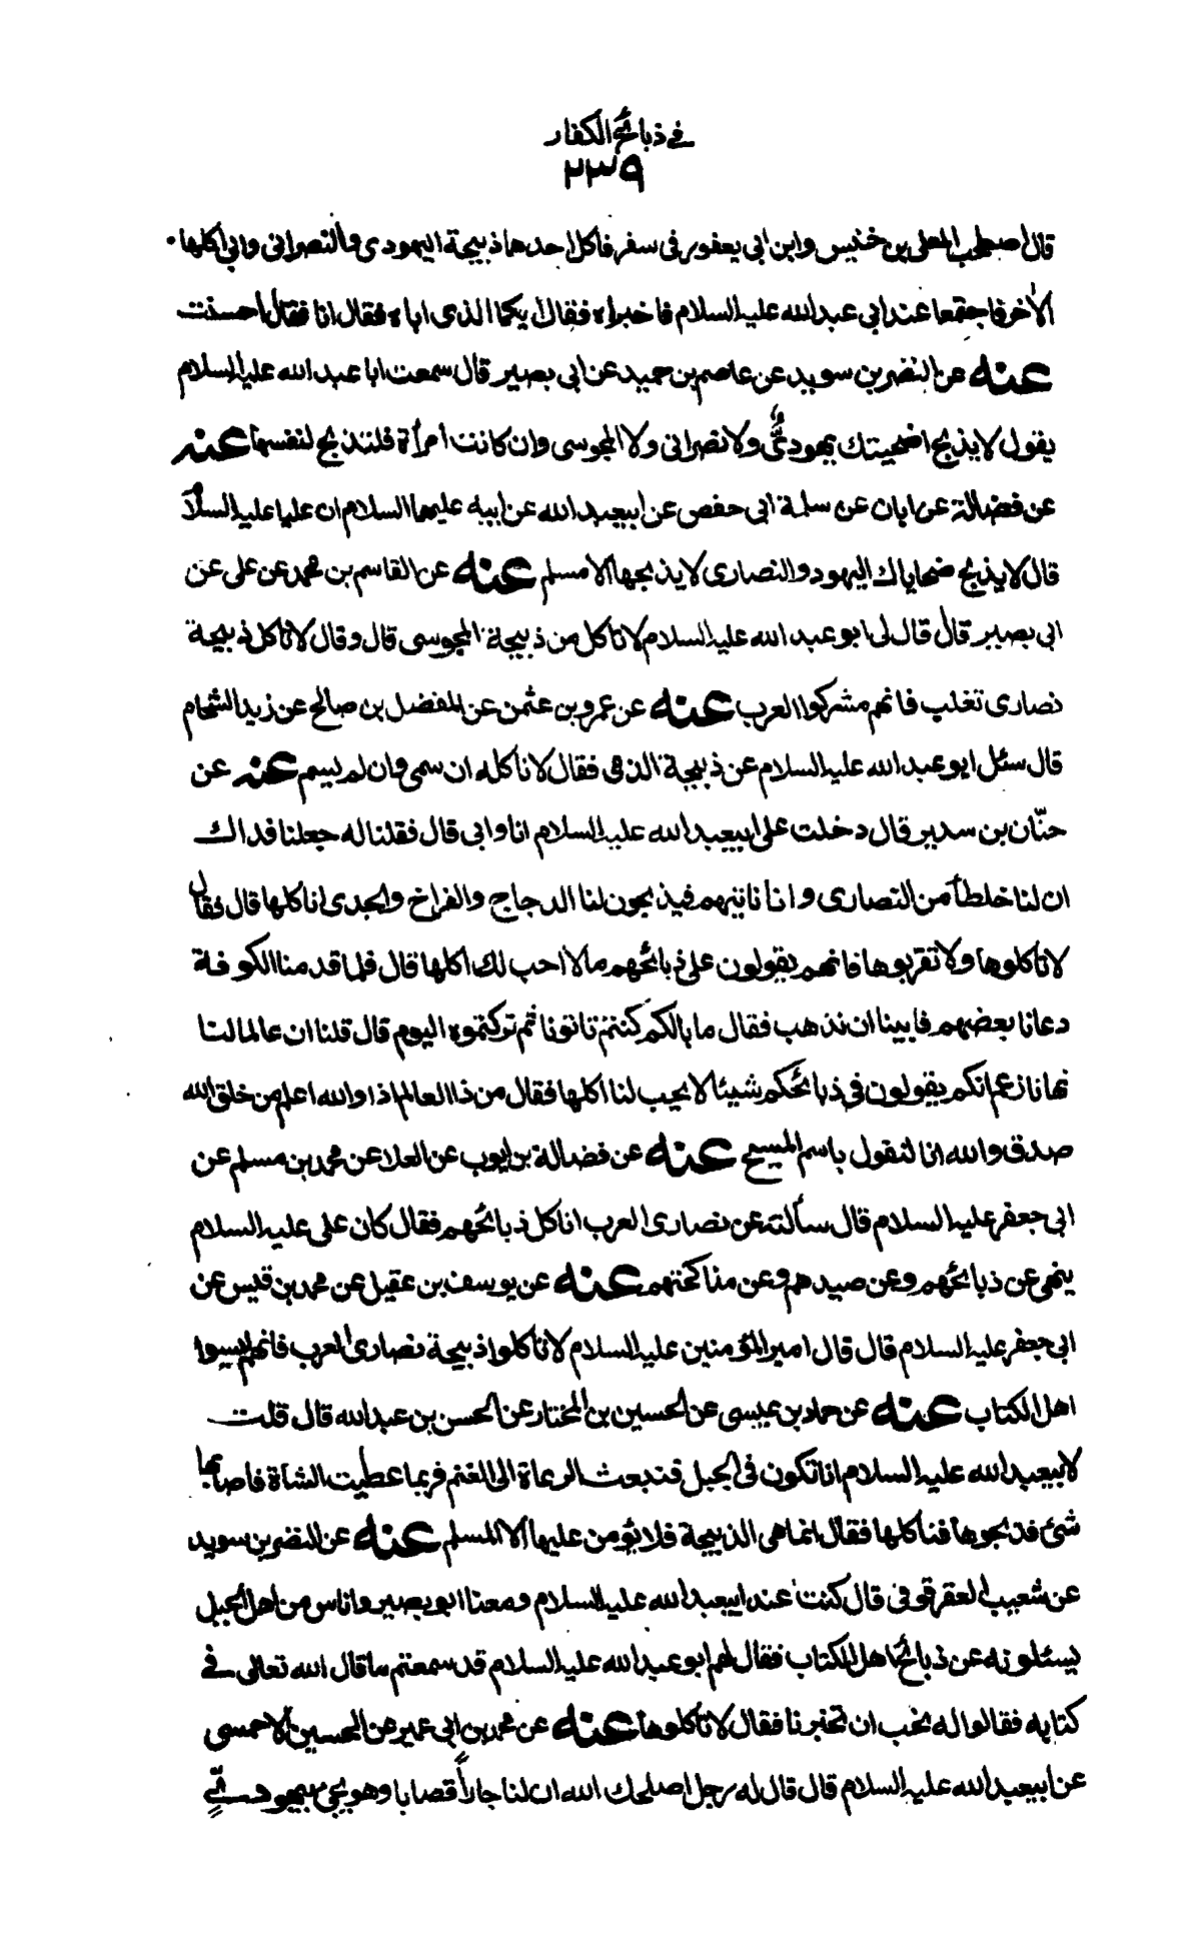 في ذبائح الكفار
٢٣٩
قال اصطحب المعلى بن خنيس وابن ابى يعفور فى سفر فاكل احدهما ذبيحة اليهودى والنصرانى وابى اكلها
الاخر فاجتمعا عند ابى عبدالله عليه السلام فاخبراه فقال ايكما الذى اباه فقال انا فقال احسنت
عنه عن النضر بن سويد عن عاصم بن حميد عن ابى بصير قال سمعت ابا عبدالله عليه السلام
يقول لا يذبح اضحيتك يهودىٌّ ولا نصرانى ولا المجوسى وان كانت امرأة فلتذبح لنفسها عنه
عن فضالة عن ابان عن سلمة ابى حفص عن ابيعبدالله عن ابيه عليهما السلام ان عليا عليه السلام
قال لا يذبح ضحاياك اليهود والنصارى لا يذبحها الا مسلم عنه عن القاسم بن محمد عن على عن
ابى بصير قال قال لى ابو عبد الله عليه السلام لا تاكل من ذبيحة المجوسى قال وقال لا تاكل ذبيحة
نصارى تغلب فانهم مشركوا العرب عنه عن عمرو بن عثمن عن المفضل بن صالح عن زيد الشحام
قال سئل ابو عبد الله عليه السلام عن ذبيحة الذمى فقال لا تاكله ان سمى وان لم يسم عنه عن
حنّان بن سدير قال دخلت على ابيعبدالله عليه السلام انا وابى فقلنا له جعلنا فداك
ان لنا خلطاً من النصارى وانا ناتيهم فيذبحون لنا الدجاج والفراخ والجدى اناكلها قال فقال
لا تاكلوها ولا تقربوها فانهم يقولون على ذبائحهم ما لا احب لك اكلها قال فلما قدمنا الكوفة
دعانا بعضهم فابينا ان نذهب فقال ما بالكم كنتم تاتونا ثم تركتموه اليوم قال قلنا ان عالما لنا
نهانا زعم انكم يقولون فى ذبائحكم شيئا لا يحب لنا اكلها فقال من ذا العالم اذا والله اعلم من خلق الله
صدق والله انا لنقول باسم المسيح عنه عن فضالة بن ايوب عن العلا عن محمد بن مسلم عن
ابى جعفر عليه السلام قال سألته عن نصارى العرب اتاكل ذبائحهم فقال كان على عليه السلام
ينهى عن ذبائحهم وعن صيدهم وعن مناكحتهم عنه عن يوسف بن عقيل عن محمد بن قيس عن
ابى جعفر عليه السلام قال قال امير المؤمنين عليه السلام لا تاكلوا ذبيحة نصارى العرب فانهم ليسوا
اهل الكتاب عنه عن حماد بن عيسى عن الحسين بن المختار عن الحسن بن عبدالله قال قلت
لابيعبدالله عليه السلام انا نكون فى الجبل فنبعث الرعاة الى الغنم فربما عطبت الشاة فاصابها
شئ فذبحوها فناكلها فقال انما هى الذبيحة فلا يؤمن عليها الا المسلم عنه عن النضر بن سويد
عن شعيب العقرقوفى قال كنت عند ابيعبدالله عليه السلام ومعنا ابو بصير واناس من اهل الجبل
يسئلونه عن ذبائح اهل الكتاب فقال لهم ابو عبد الله عليه السلام قد سمعتم ما قال الله تعالى فى
كتابه فقالوا له نحب ان تخبرنا فقال لا تاكلوها عنه عن محمد بن ابى عمير عن الحسين الاحمسى
عن ابيعبدالله عليه السلام قال قال له رجل اصلحك الله ان لنا جاراً قصابا وهو يجئ بيهودىٍّ